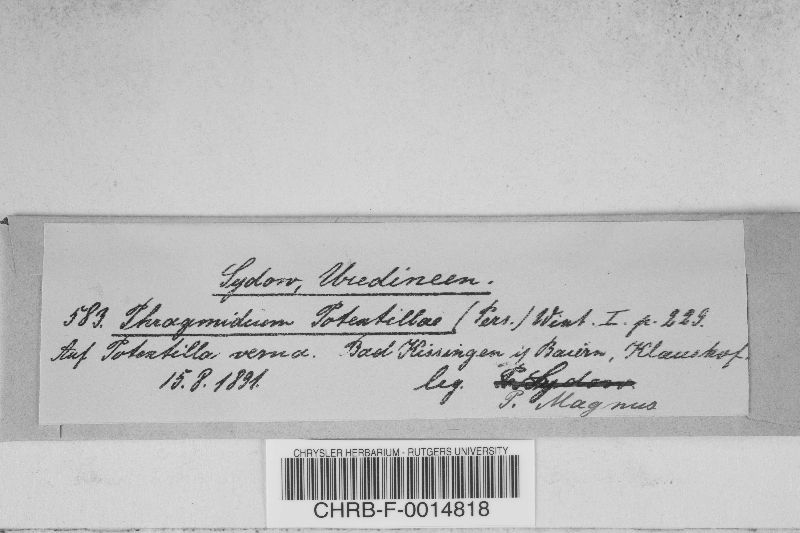 Sydow, Uredineen.
583. Phragmidium Potentillae (Pers.) Wint. I. p. 229.
Auf Potentilla verna. Bad Kissingen in Baiern, Klaushof.
15. 8. 1891. leg. P. Sydow.
P. Magnus
CHRYSLER HERBARIUM - RUTGERS UNIVERSITY
CHRB-F-0014818